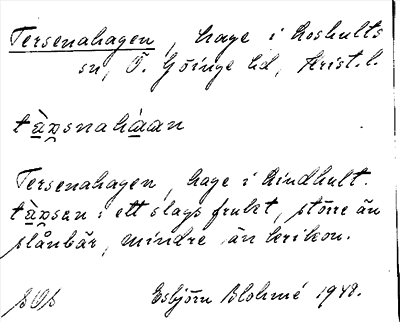 Tersenahagen, hage i Loshults
sn, Ö. Göinge hd, Krist. l.
tàṉsnahàan
Tersenahagen, hage i Kindhult.
tàṉsen: ett slags frukt, större än
slånbär, mindre än krikon.
Esbjörn Blohmé 1948.